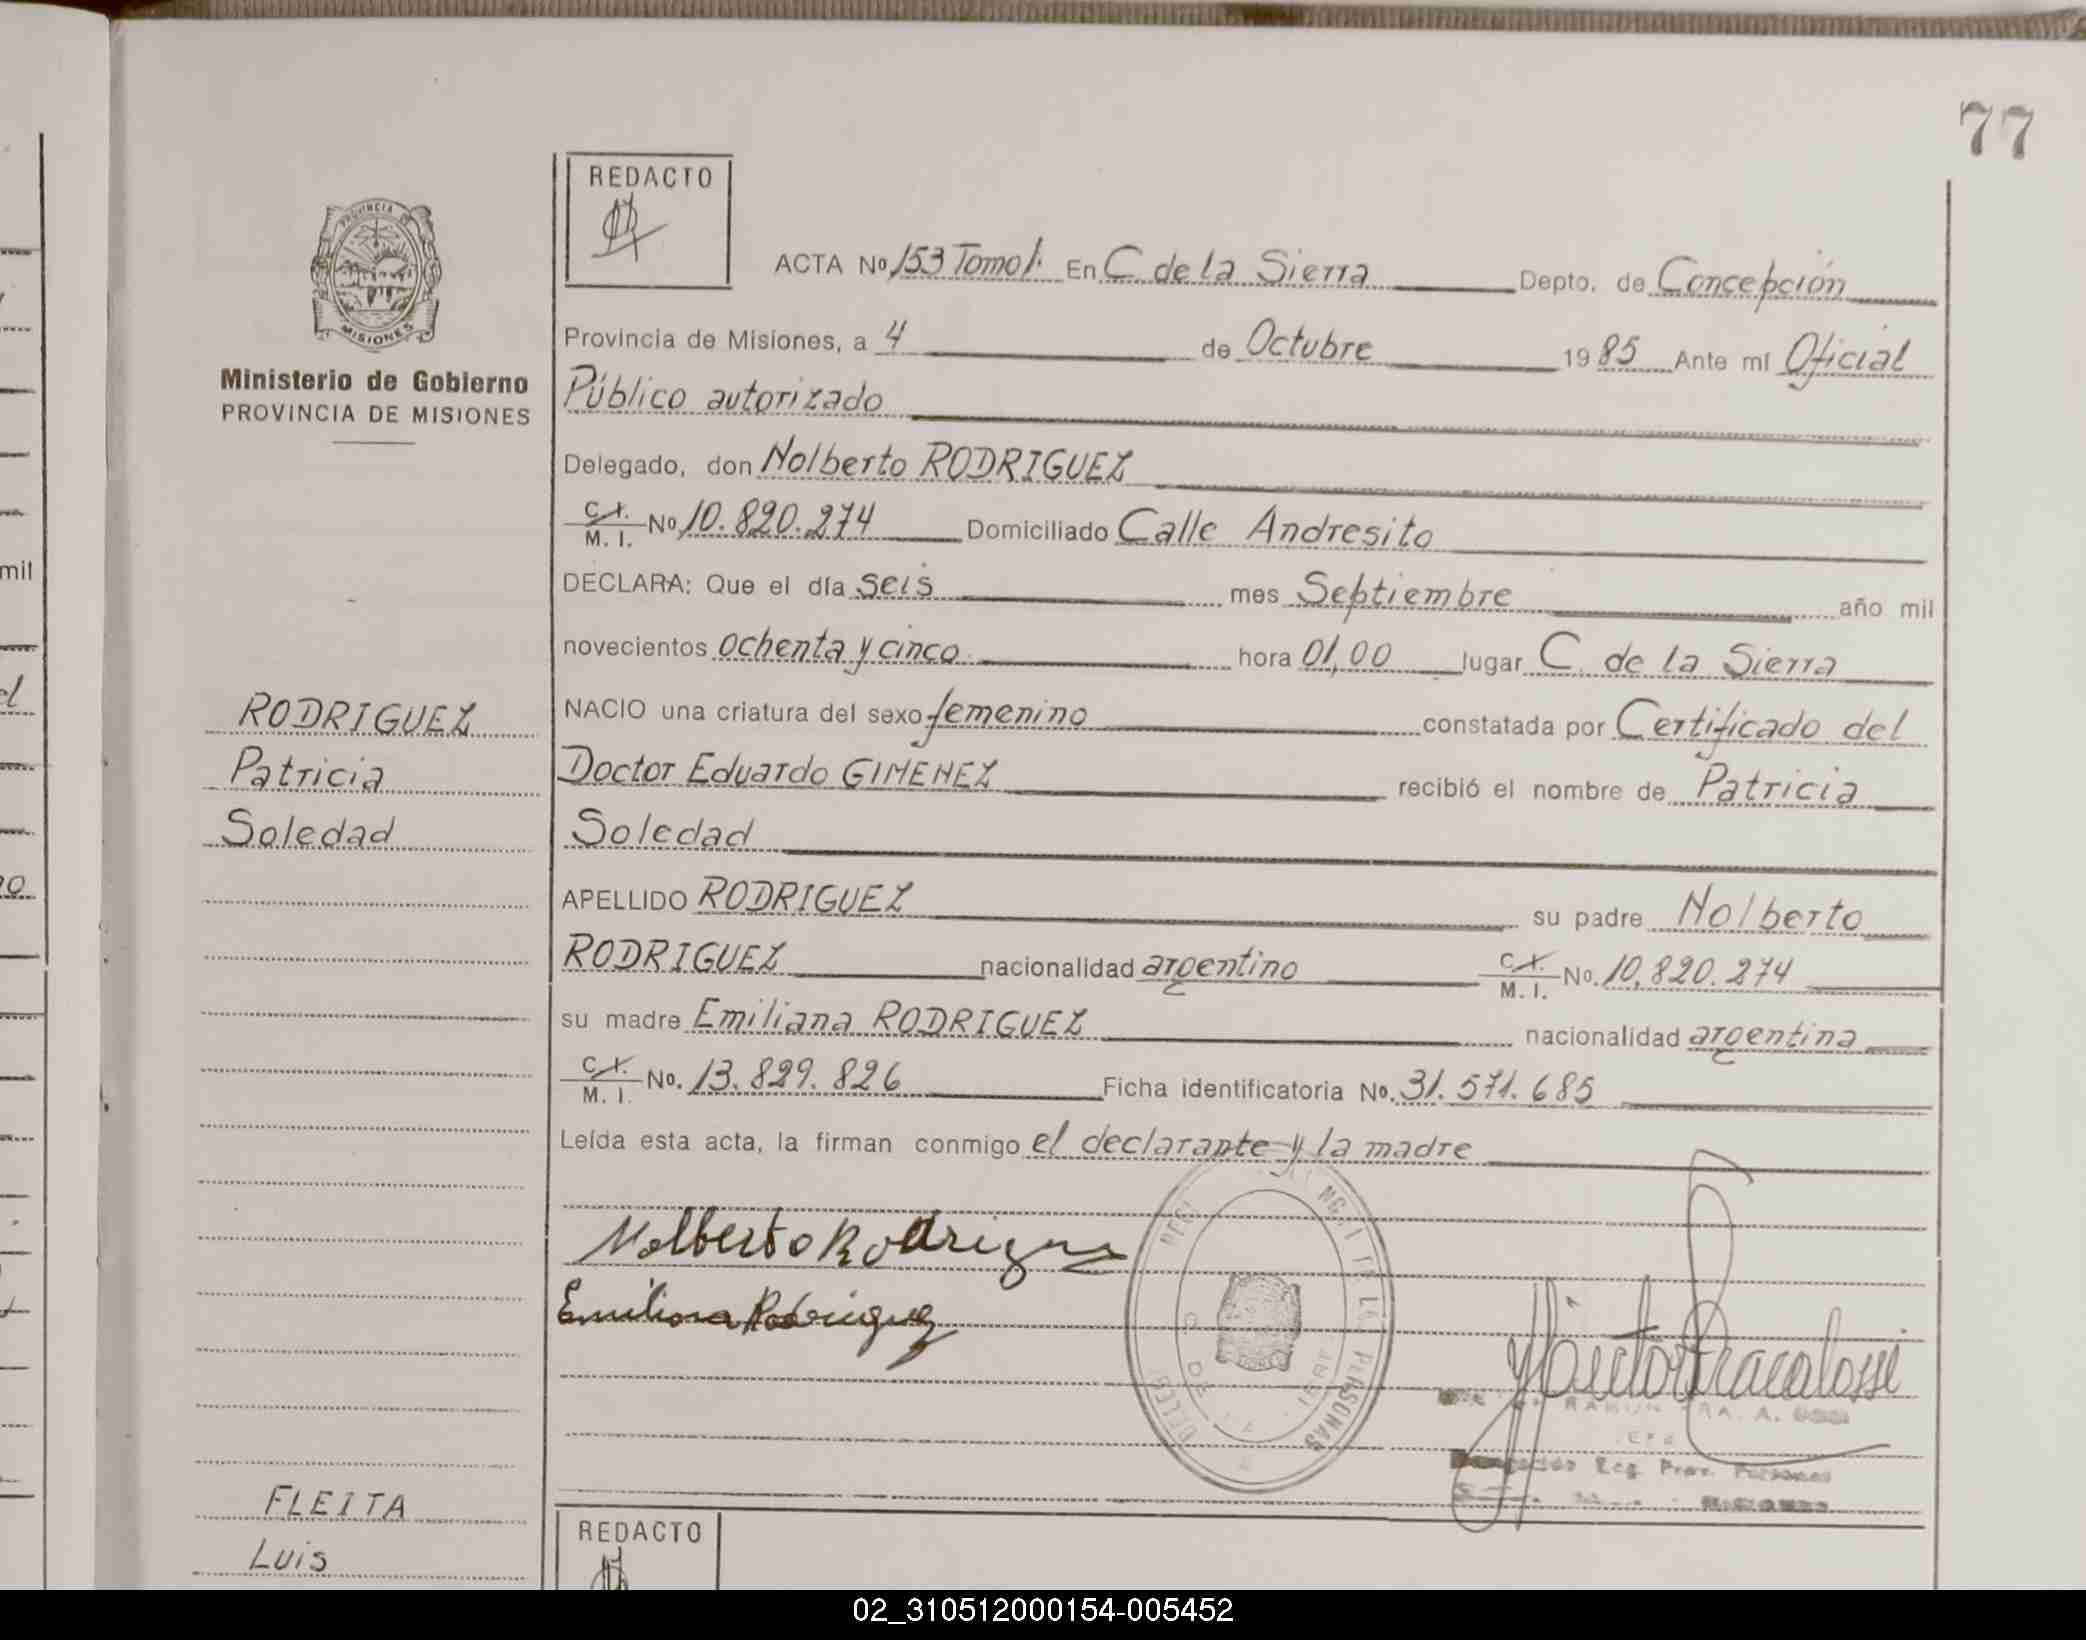 77
REDACTO
PROVINCIA DE
MISIONES
ACTA No 153 Tomo I. En C. de la Sierra Depto. de Concepción
Provincia de Misiones, a 4 de Octubre 1985 Ante mí Oficial
Ministerio de Gobierno
PROVINCIA DE MISIONES
Público autorizado
Delegado, don Nolberto RODRIGUEZ
C.I. M.I. No 10.820.274 Domiciliado Calle Andresito
DECLARA: Que el día seis mes Septiembre año mil
novecientos ochenta y cinco hora 01,00 lugar C. de la Sierra
NACIO una criatura del sexo femenino constatada por Certificado del
Doctor Eduardo GIMENEZ recibió el nombre de Patricia
Soledad
APELLIDO RODRIGUEZ su padre Nolberto
RODRIGUEZ nacionalidad argentino C.I. M.I. No. 10.820.274
su madre Emiliana RODRIGUEZ nacionalidad argentina
C.I. M.I. No. 13.829.826 Ficha identificatoria No. 31.571.685
Leída esta acta, la firman conmigo el declarante y la madre
Nolberto Rodrigue
Emiliana Rodriguez
PERSONAS
Hector Fracalossi
Reg. Prov. Personas
RODRIGUEZ
Patricia
Soledad
FLEITA
Luis
REDACTO
mil
el
02_310512000154-005452